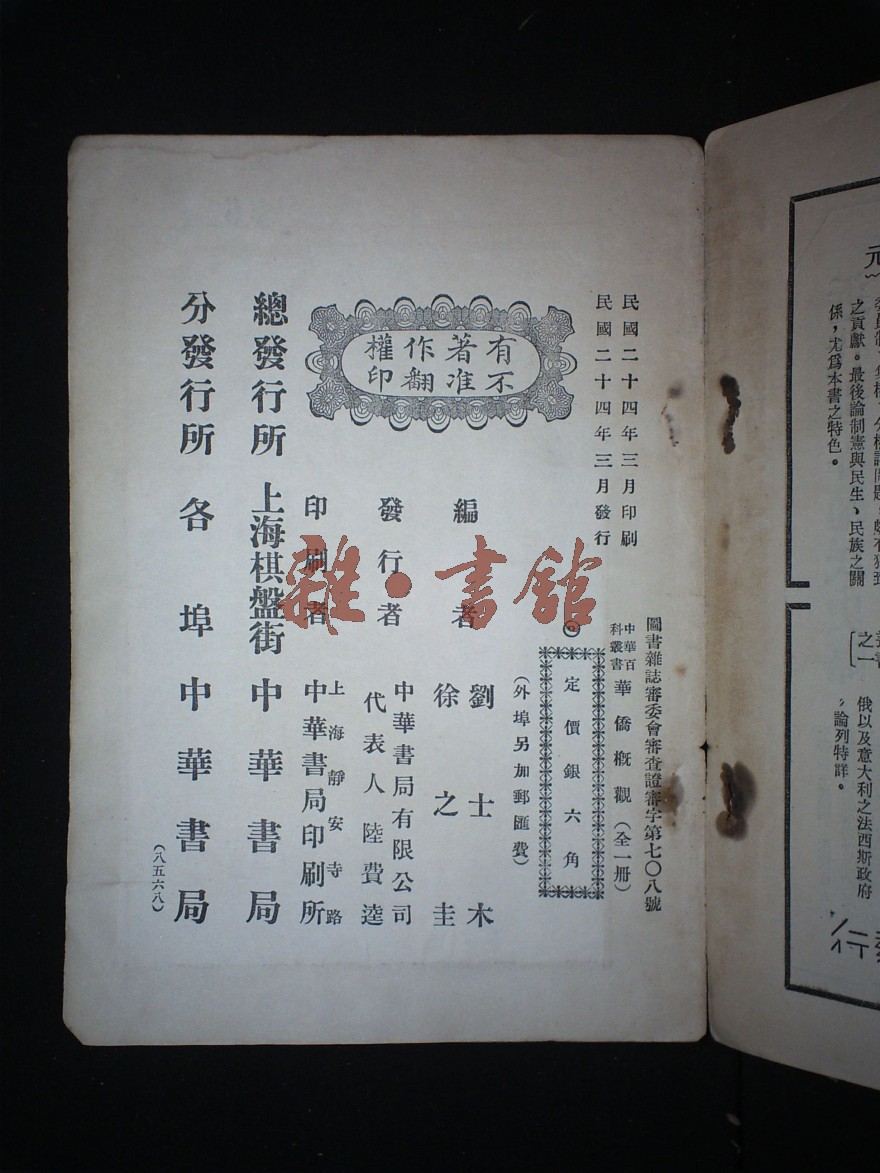 民國二十四年三月印刷
民國二十四年三月發行
有著作權
不准翻印
圖書雜誌審委會審查證審字第七〇八號
中華百科叢書 華僑概觀（全一冊）
定價銀六角
（外埠另加郵匯費）
編者 劉士木
徐之圭
發行者 中華書局有限公司
代表人 陸費逵
印刷者 上海靜安寺路
中華書局印刷所
總發行所 上海棋盤街 中華書局
分發行所 各埠中華書局
（八五六八）
雜·書館
元
之貢獻。最後論制憲與民生、民族之關
係，尤爲本書之特色。
之一
俄以及意大利之法西斯政府
，論列特詳。
行